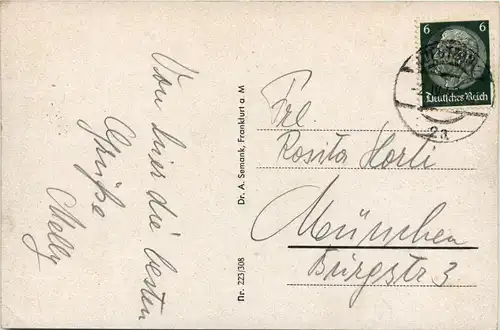 Von hier die besten
Grüße
Melly
Dr. A. Semank, Frankfurt a. M
Nr. 223/308
6 6
Deutsches Reich
2a
Frl.
Rosita Horti
München
Burgstr 3